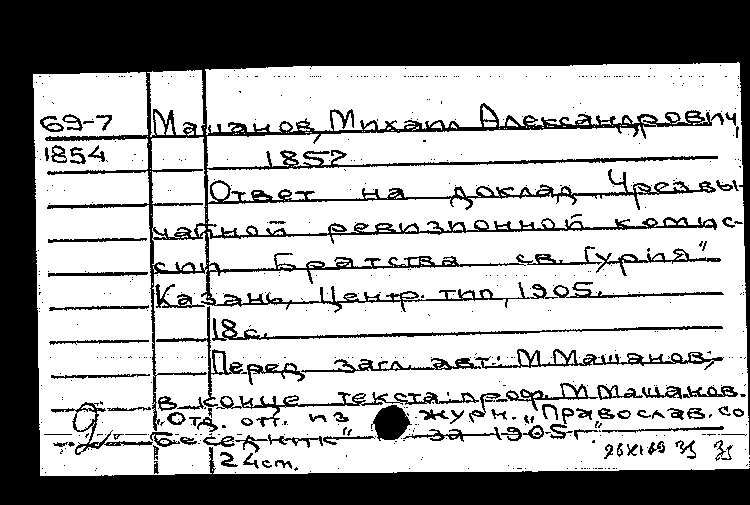 69-7 Машанов, Михаил Александрович,
1854 1852
Ответ на доклад "Чрезвы-
чайной ревизионной комис-
сии Братства св. Гурия"
Казань, Центр. тип, 1905.
18 с.
Перед загл. авт.: М.Машанов;
в конце текста: проф. М.Машанов.
"Отд. отт. из журн. "Православ. со
беседник" за 1905г."
24 cm.